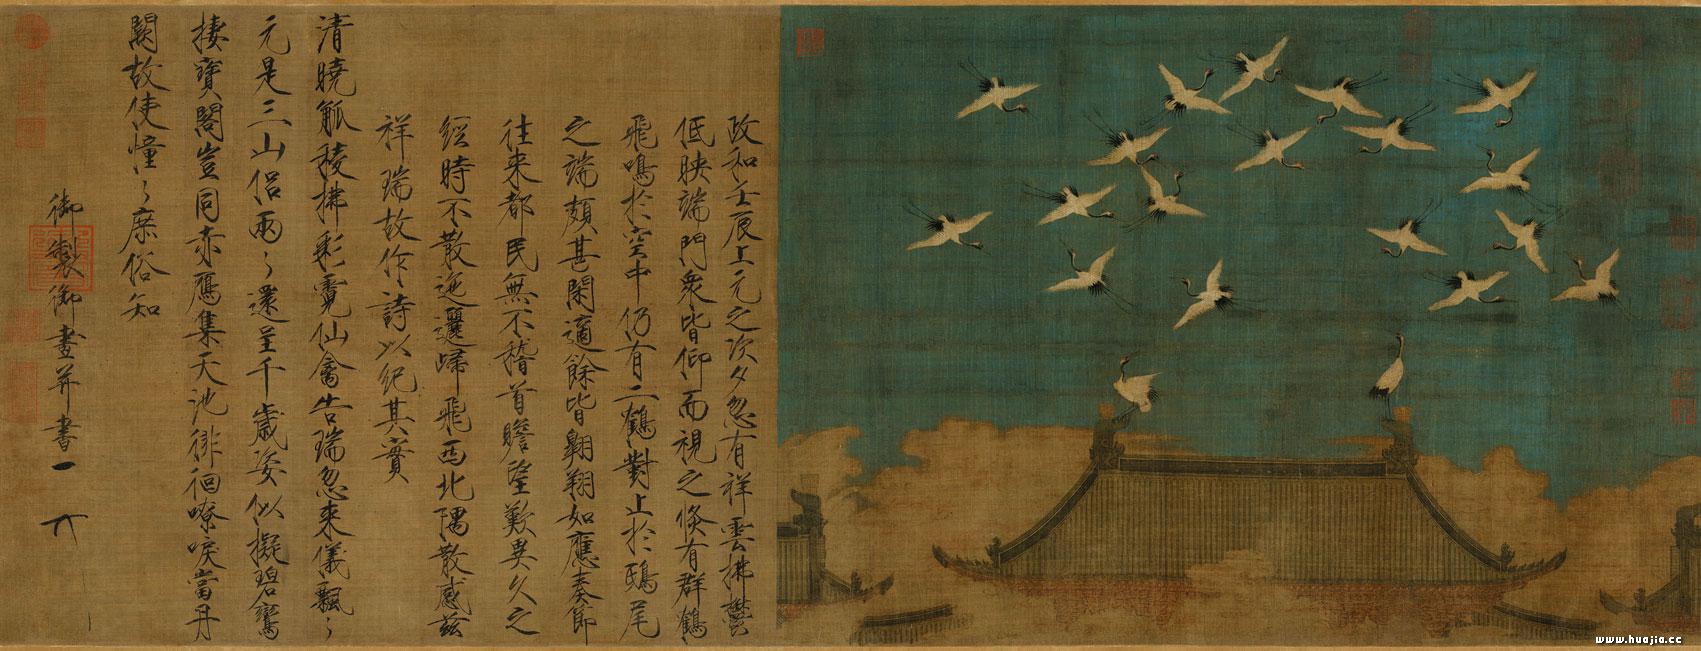 政和壬辰上元之次夕忽有祥雲拂鬱
低映端門衆皆仰而視之倏有群鶴
飛鳴於空中仍有二鶴對止於鴟尾
之端頗甚閑適餘皆翱翔如應奏節
往来都民無不稽首瞻望歎異久之
經時不散迤邐歸飛西北隅散感茲
祥瑞故作詩以紀其實
清曉觚稜拂彩霓仙禽告瑞忽来儀飄〻
元是三山侣兩〻還呈千歲姿似擬碧鸞
棲寶閣豈同赤鴈集天池徘徊嘹唳當丹
闕故使憧〻庶俗知
御製御畫并書
www.huajia.cc